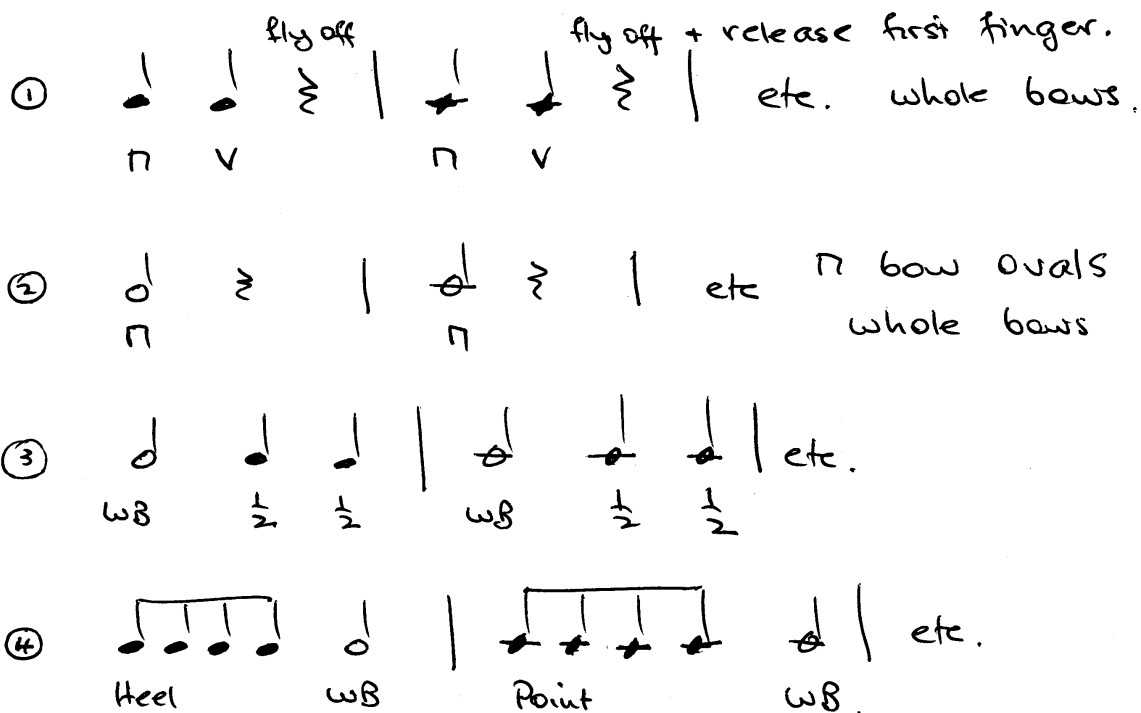 fly off fly off + release first finger.
① etc. whole bows.
⊓ V ⊓ V
② etc ⊓ bow ovals
⊓ ⊓ whole bows
③ etc.
WB 1/2 1/2 WB 1/2 1/2
④ etc.
Heel WB Point WB.